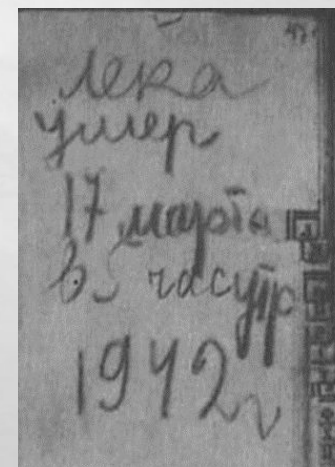 Лека
умер
17 марта
в 5 часутр
1942 г